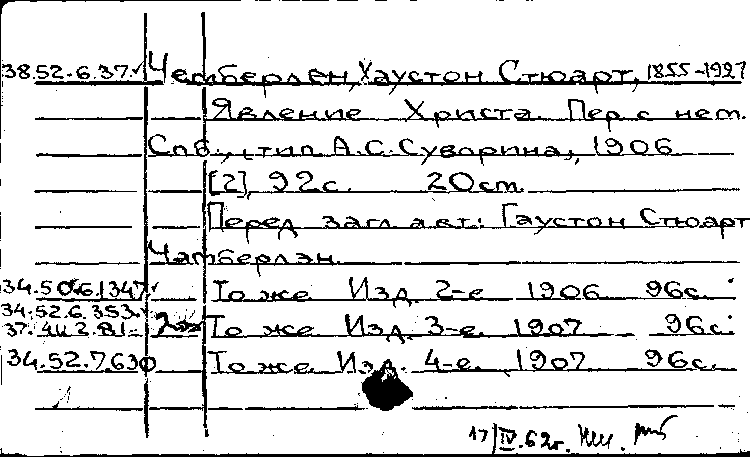 38.52.6.37 Чемберлен, Хаустон Стюарт, 1855-1927
Явление Христа. Пер. с нем.
Спб., тип. А.С. Суворина, 1906
[2], 92с. 20см.
Перед загл. авт.: Гаустон Стюарт
Чамберлэн.
34.50.6.1347 То же. Изд. 2-е. 1906. 96с.
34.52.6.353
То же. Изд. 3-е. 1907. 96с.
34.52.7.630 То же. Изд. 4-е. 1907 96с.
17/IV.62г.